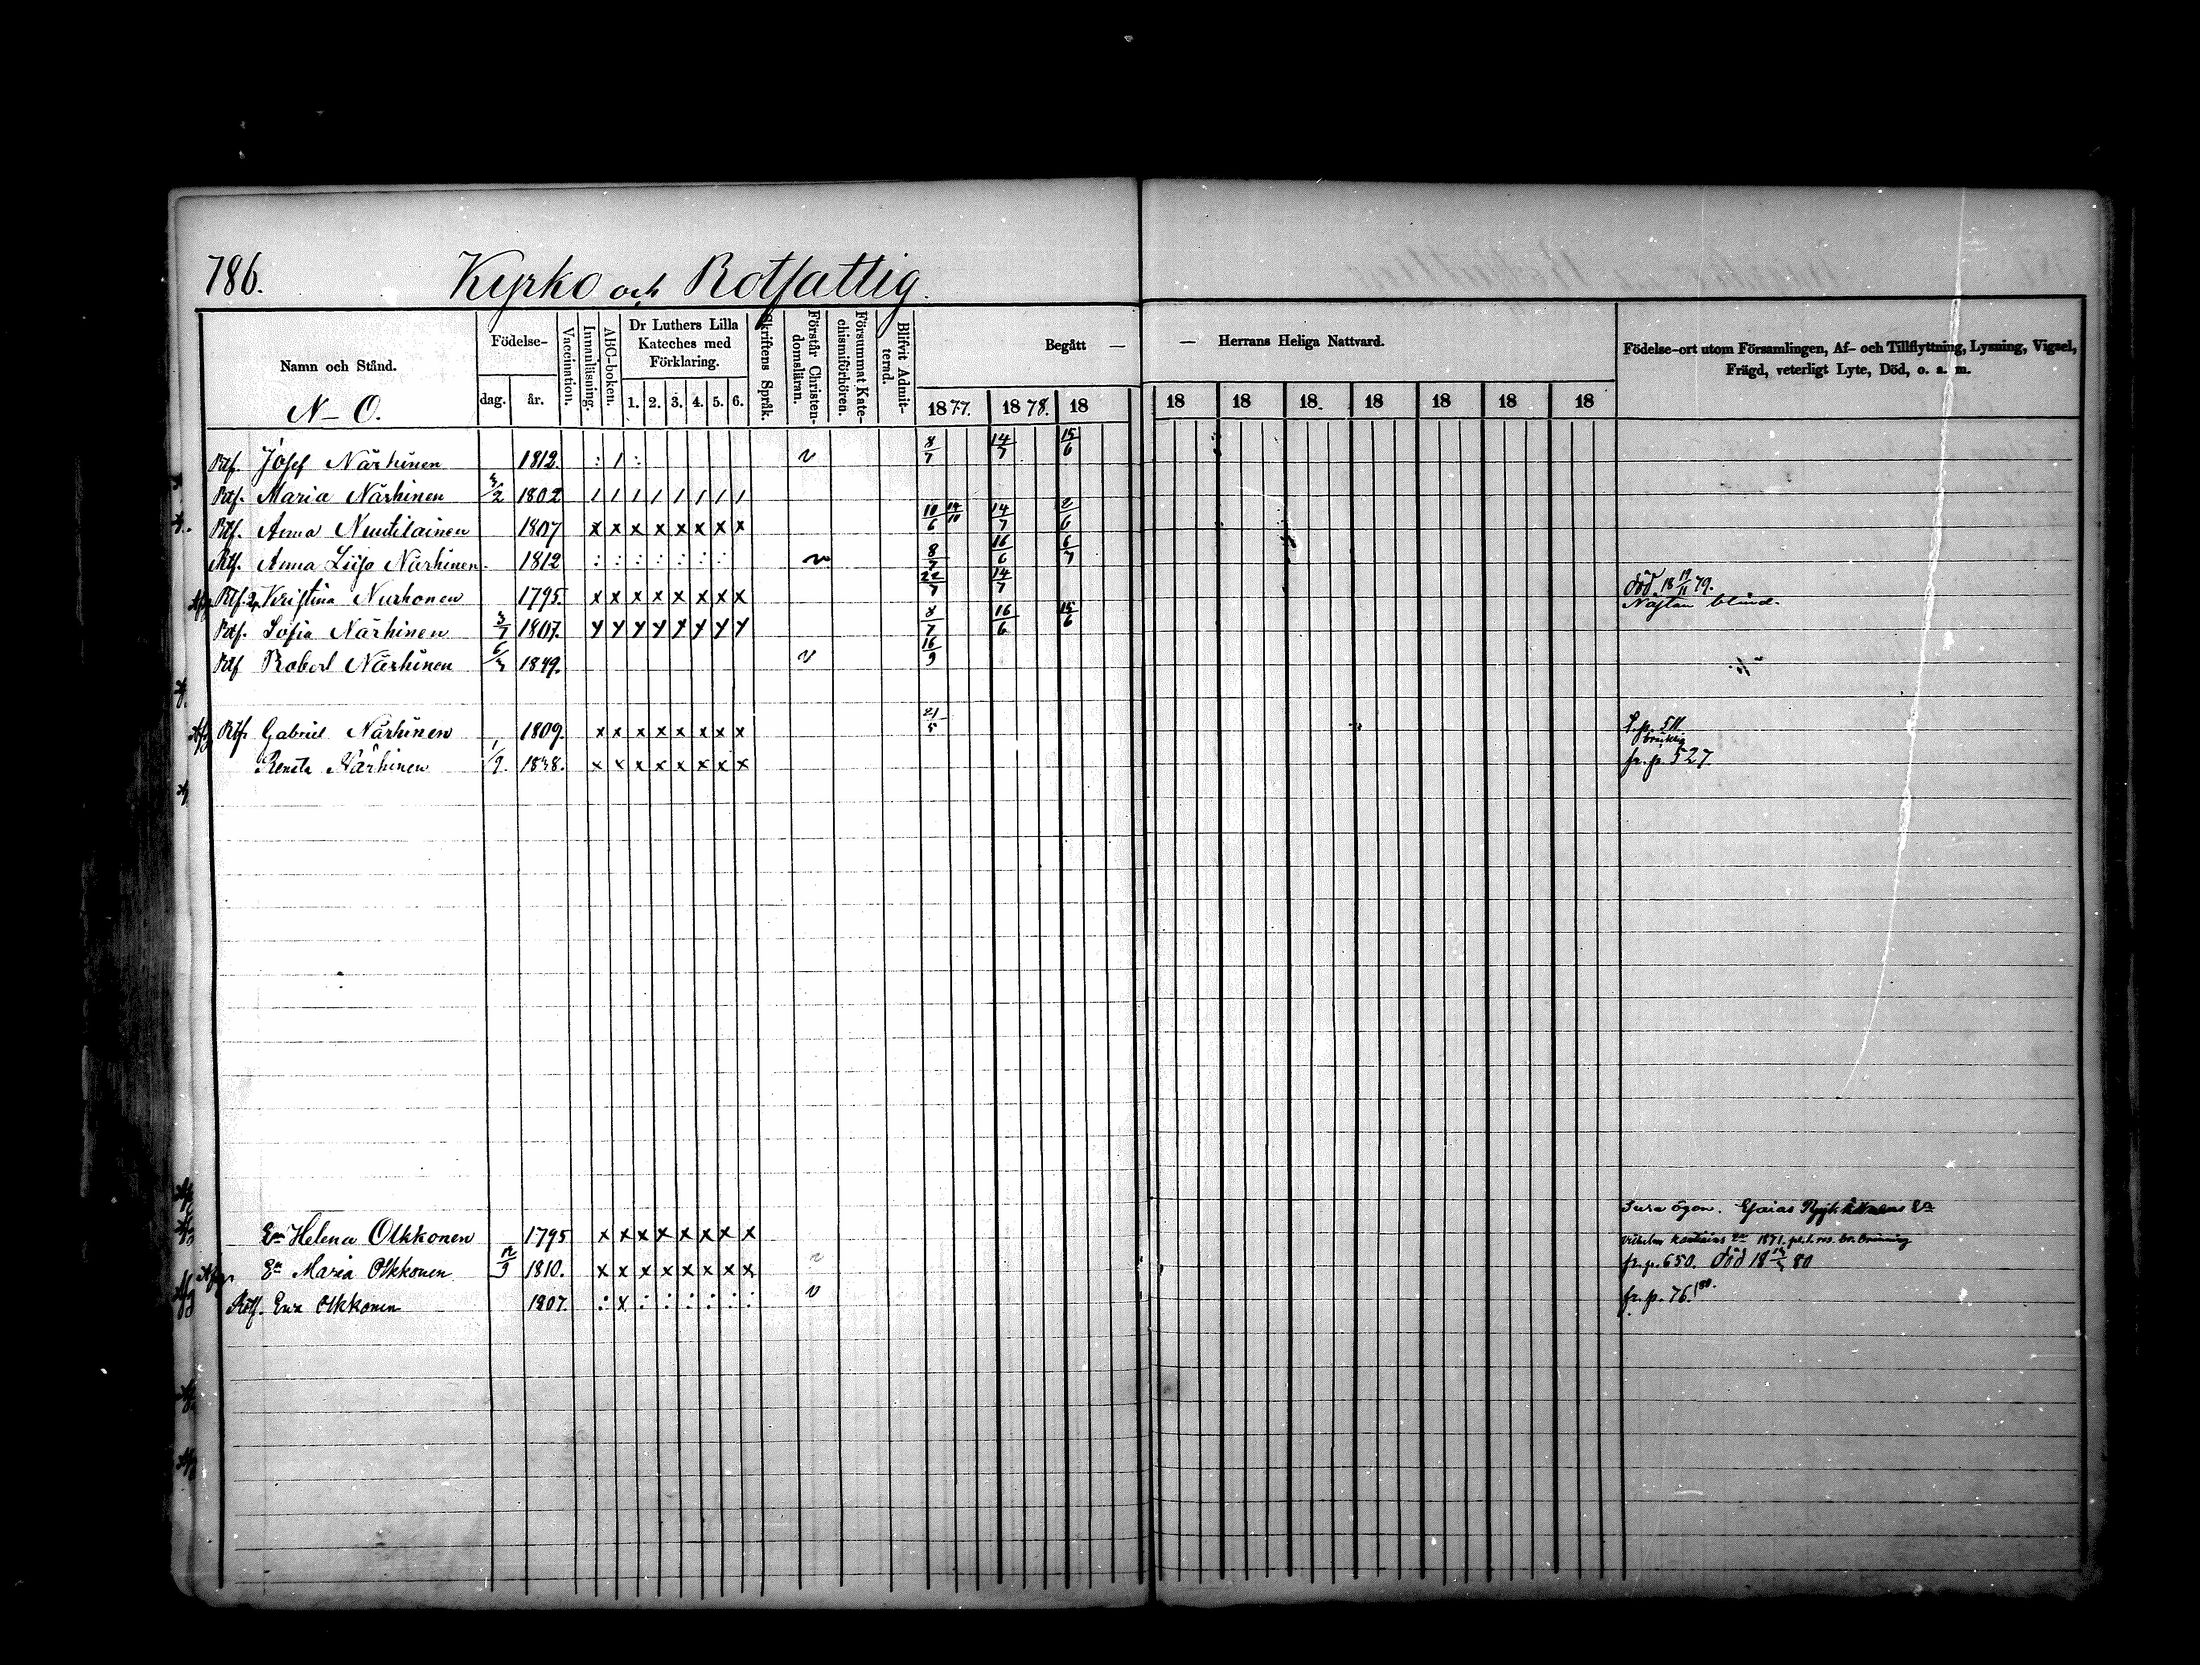 786. Kyrko och Rotfattig.
Namn och Stånd.
N–O.
Födelse-
dag.
år.
Vaccination.
Innanläsning.
ABC-boken.
Dr Luthers Lilla
Kateches med
Förklaring.
1. 2. 3. 4. 5. 6.
Skriftens Språk.
Förstår Christen-
domsläran.
Försummat Kate-
chismiförhören.
Blifvit Admit-
terad.
Begått —
— Herrans Heliga Nattvard.
1877. 1878. 18 18 18 18. 18 18 18 18
Födelse-ort utom Församlingen, Af- och Tillflyttning, Lysning, Vigsel,
Frägd, veterligt Lyte, Död, o. s. m.
Rtf. Josef Närhinen 1812. : 1 : v 8/7 14/7 15/6
Rtf. Maria Närhinen 1802 1 1 1 1 1 1 1 1
Rtf. Anna Nuutilainen 1807 x x x x x x x x 10/6 14/10 14/7 2/6
Rtf. Anna Liisa Närhinen 1812 : : : : : : : v 8/7 16/6 6/7
Rtf. Kristina Nurhonen 1795. x x x x x x x x 22/7 14/7 död 18 19/11 79.
Nästan blind.
Rtf. Sofia Närhinen 3/7 1807. y y y y y y y y 8/7 16/6 15/6
Rtf Robert Närhinen 1849. v 16/9
Rtf. Gabriel Närhinen 1809. x x x x x x x x 21/5
bräcklig
Renata Närhinen 1/9. 1838. x x x x x x x x fr. p. 527.
Sura ögon. Esaias
En Helena Olkkonen 1795 x x x x x x x x
En Maria Olkkonen 1810. x x x x x x x x v fr. p. 650. död 18 80
Rotf. Eva Olkkonen 1807. : x : : : : : : v fr. p. 76.